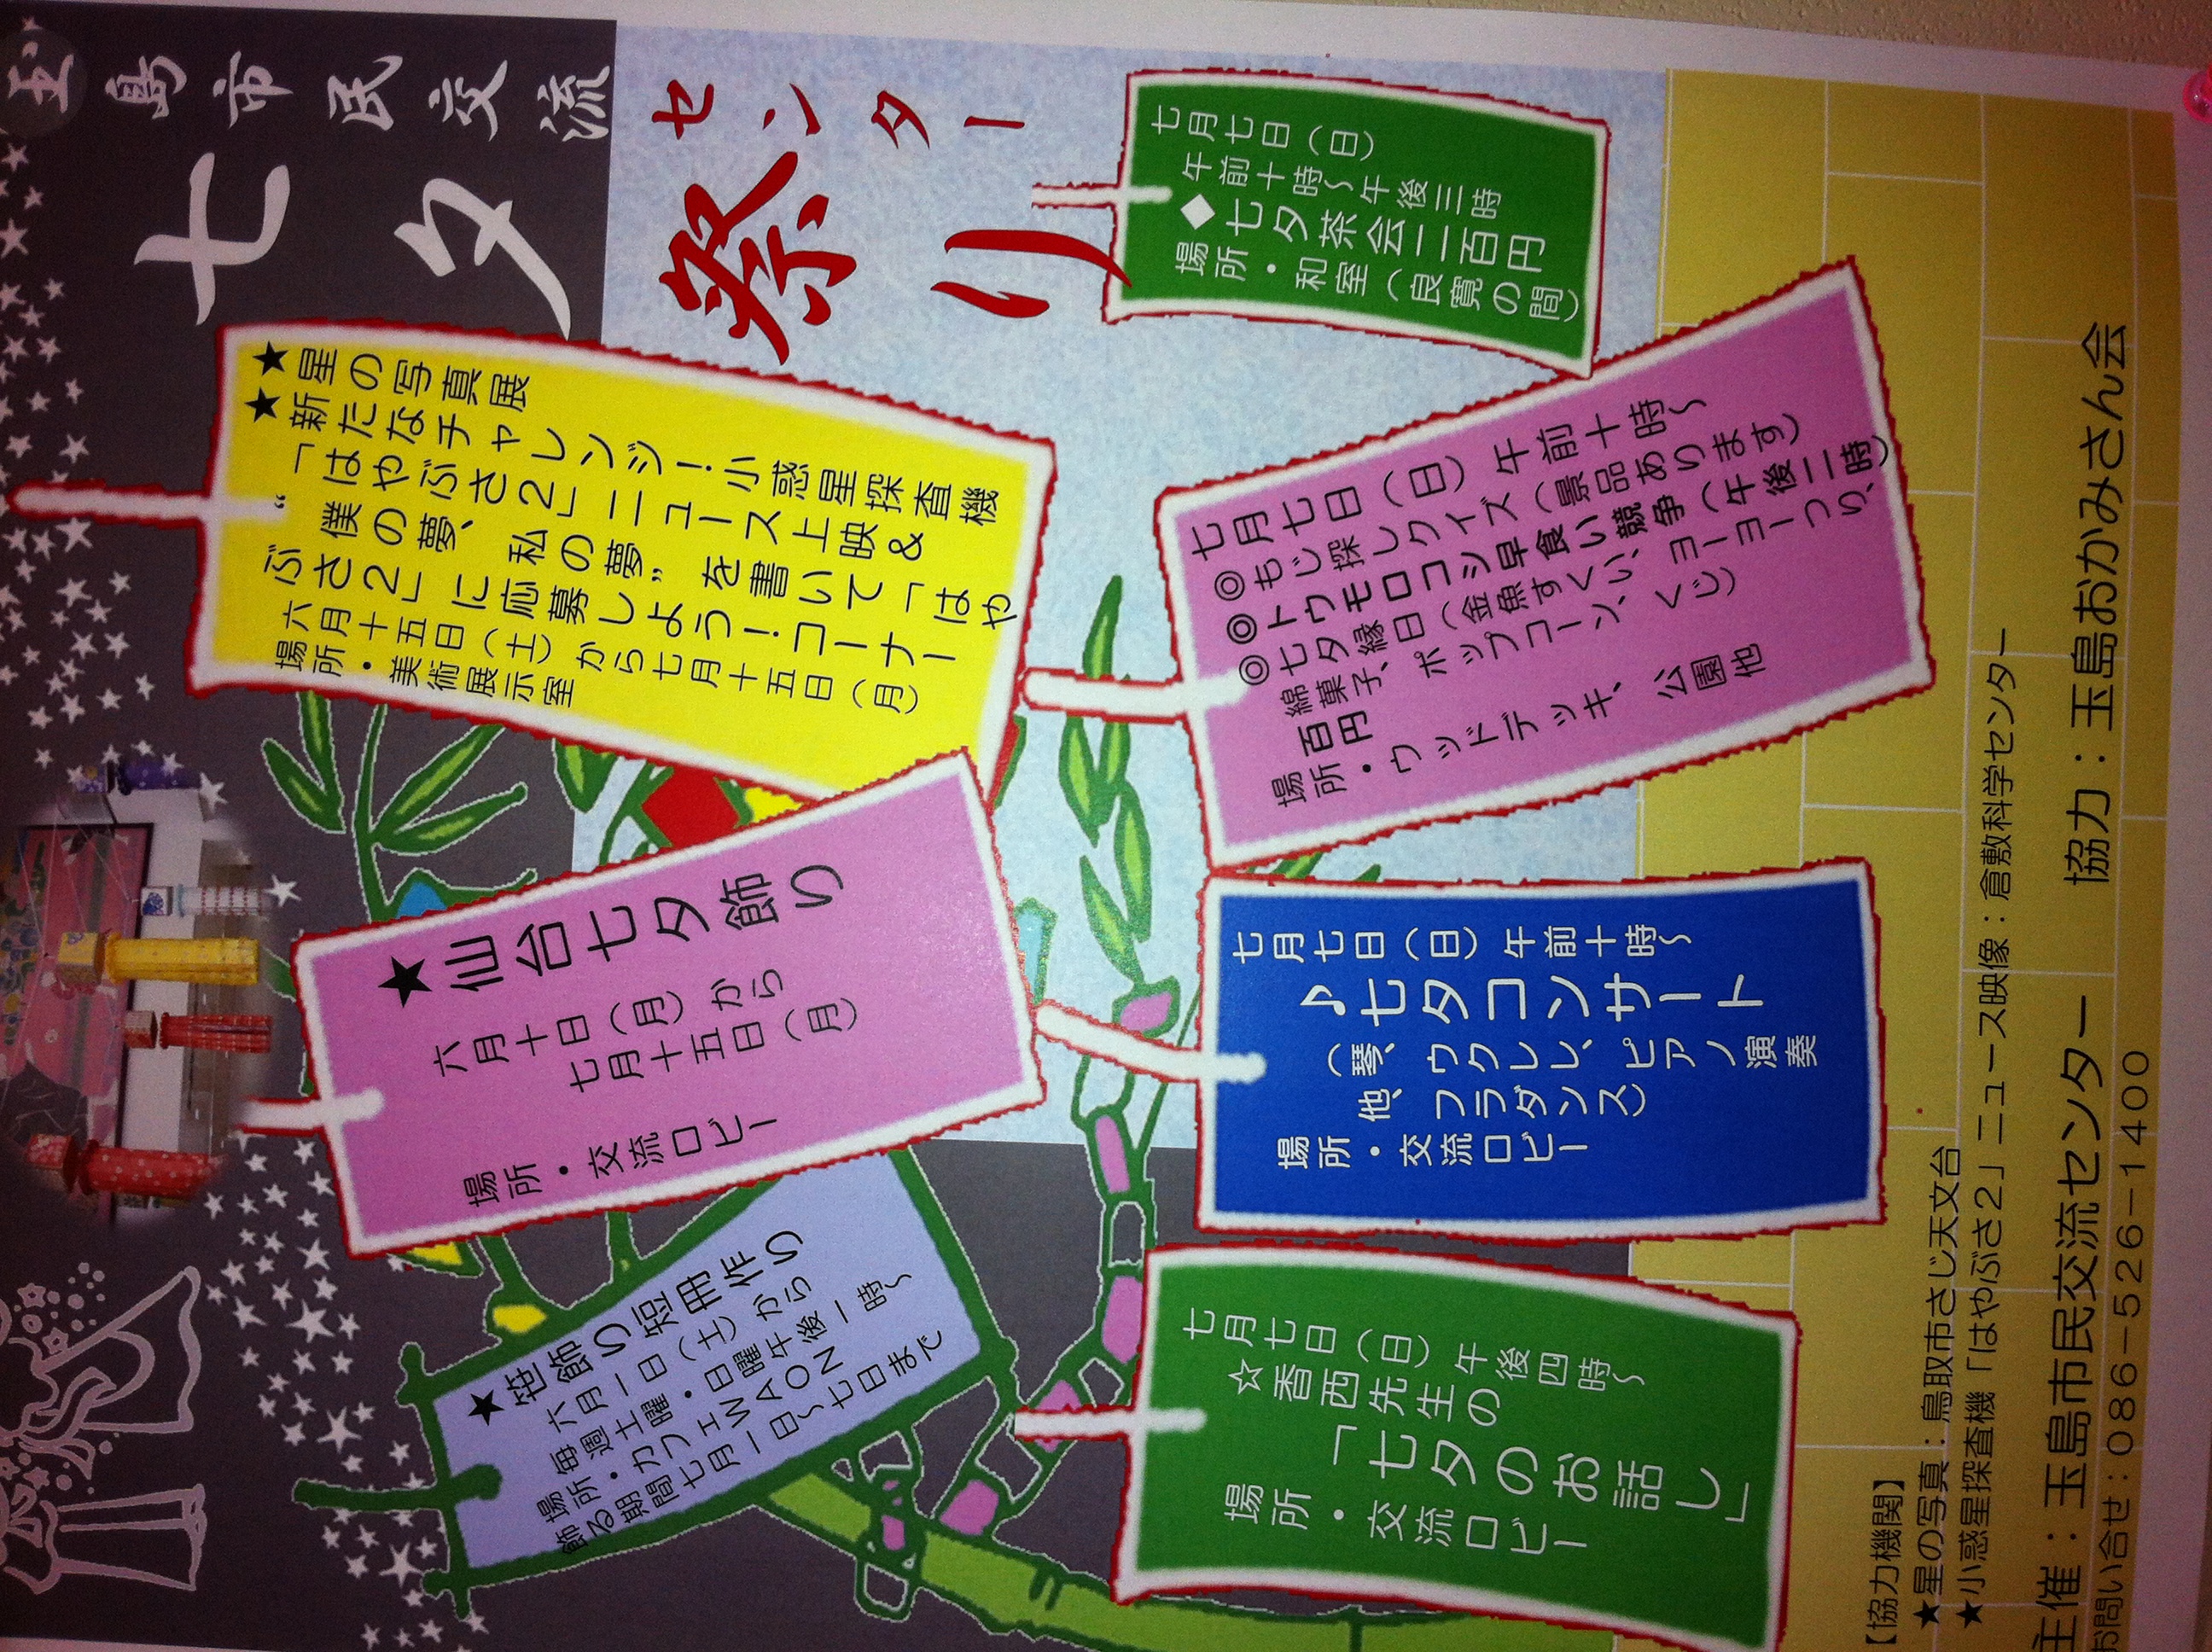 玉島市民交流
センター
七夕
祭り
七月七日（日）
午前十時～午後三時
◆七夕茶会二百円
場所・和室（良寛の間）
★星の写真展
★新たなチャレンジ！小惑星探査機
「はやぶさ２」ニュース上映＆
“僕の夢、私の夢”を書いて「はや
ぶさ２」に応募しよう！コーナー
六月十五日（土）から七月十五日（月）
場所・美術展示室
七月七日（日）午前十時～
◎もじ探しクイズ（景品あります）
◎トウモロコシ早食い競争（午後二時）
◎七夕縁日（金魚すくい、ヨーヨーつり、
綿菓子、ポップコーン、くじ）
百円
場所・ウッドデッキ、公園他
★仙台七夕飾り
六月十日（月）から
七月十五日（月）
場所・交流ロビー
七月七日（日）午前十時～
♪七夕コンサート
（琴、ウクレレ、ピアノ演奏
他、フラダンス）
場所・交流ロビー
★笹飾り短冊作り
六月一日（土）から
毎週土曜・日曜午後一時～
場所・カフェＷＡＯＮ
飾る期間七月一日～七日まで
七月七日（日）午後四時～
☆香西先生の
「七夕のお話し」
場所・交流ロビー
【協力機関】
★星の写真：鳥取市さじ天文台
★小惑星探査機「はやぶさ２」ニュース映像：倉敷科学センター
主催：玉島市民交流センター　協力：玉島おかみさん会
お問い合せ：０８６－５２６－１４００